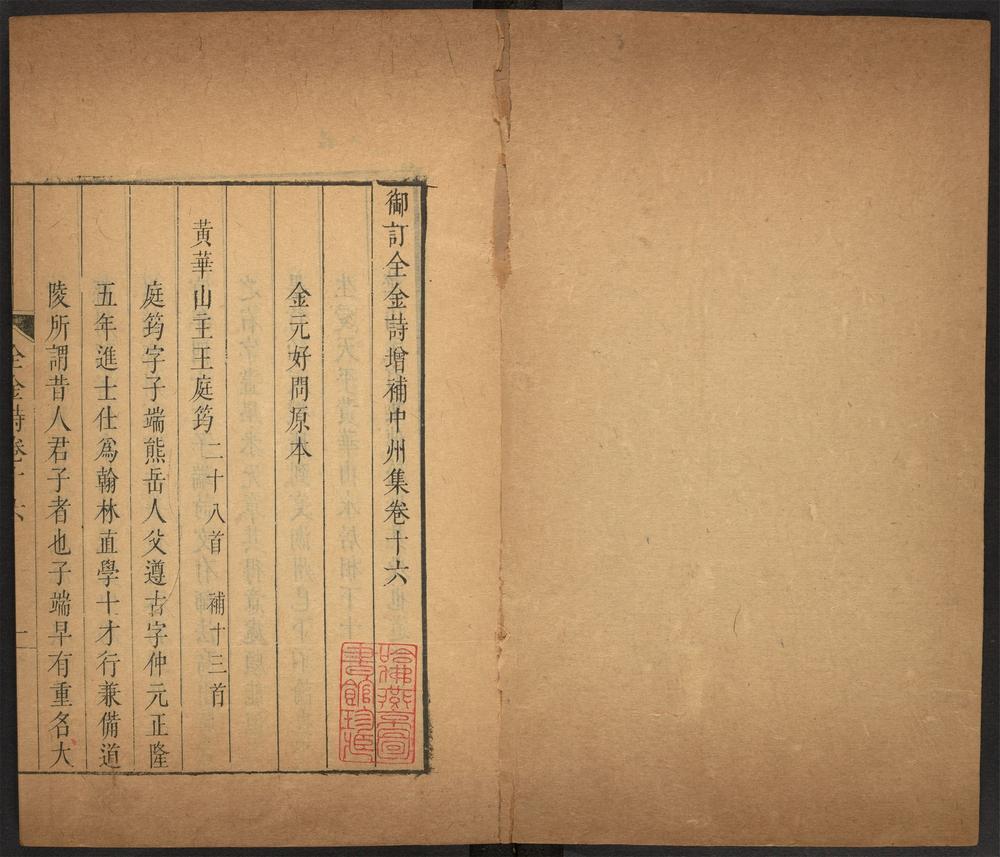 御訂全金詩增補中州集卷十六
金元好問原本
黃華山主王庭筠二十八首　補十三首
庭筠字子端熊岳人父遵古字仲元正隆
五年進士仕爲翰林直學士才行兼備道
陵所謂昔人君子者也子端早有重名大
全金詩卷十六
一
哈佛燕京圖書館珍藏